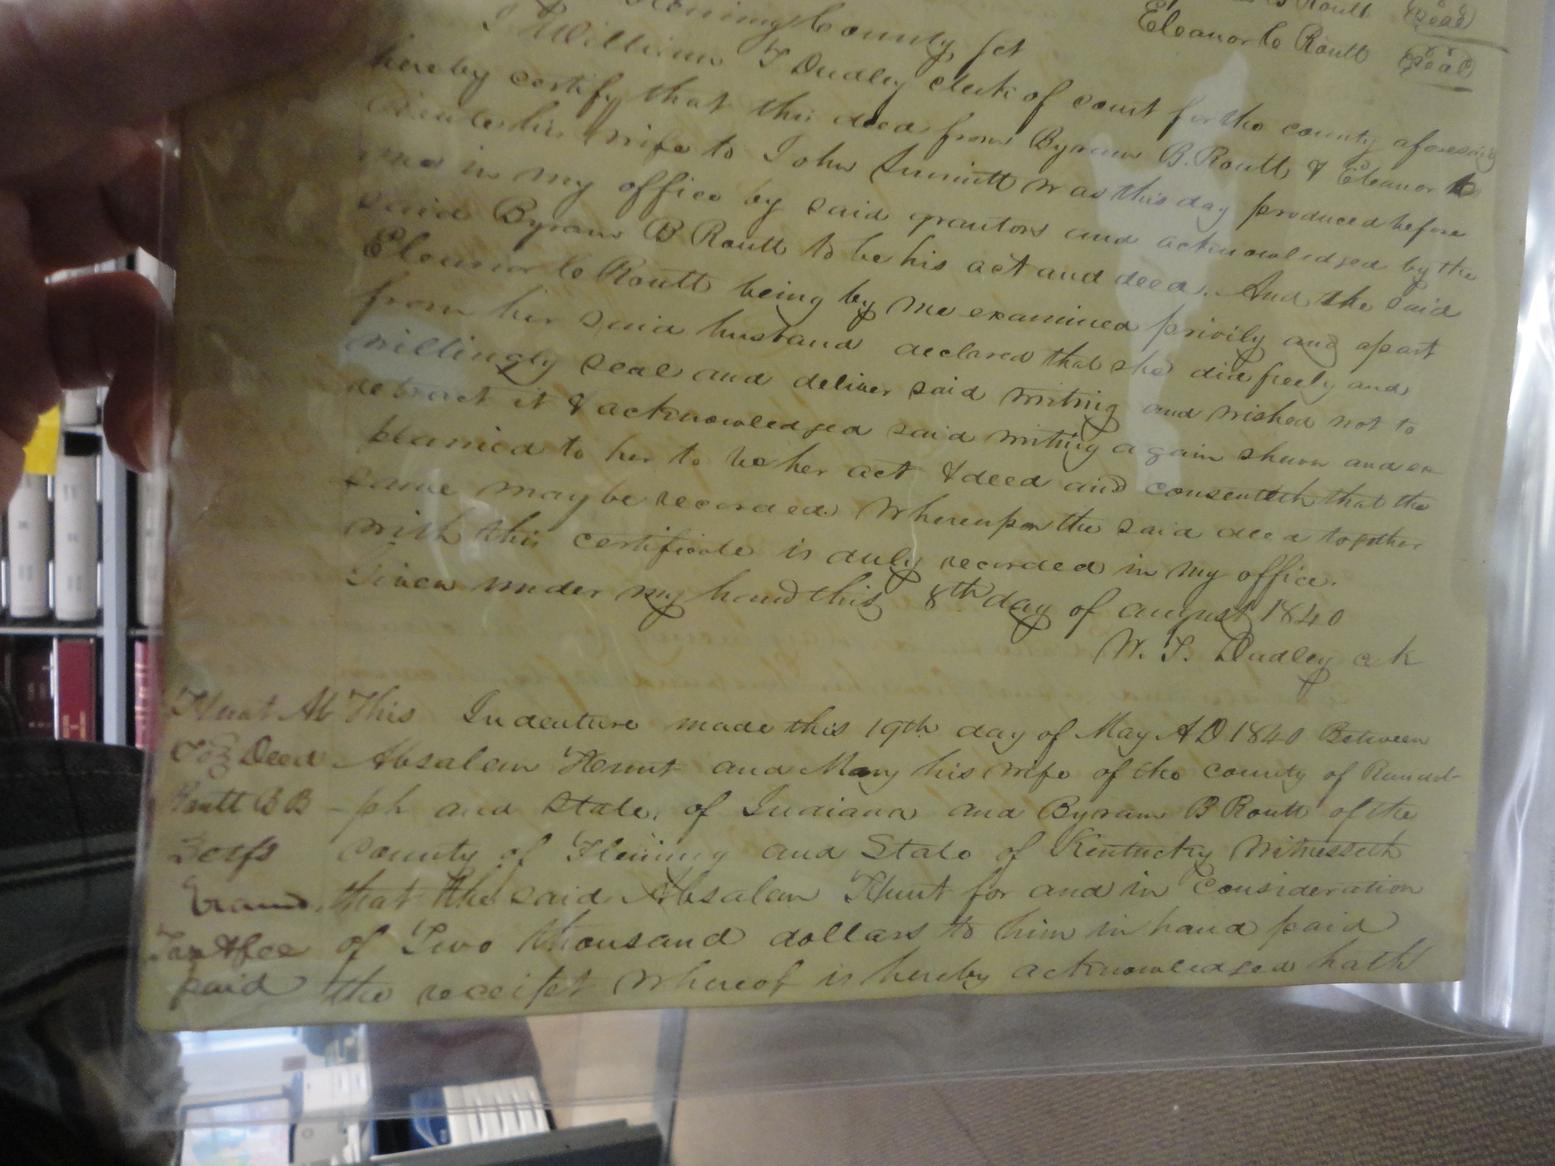 B Routt (Seal)
Eleanor C Routt (Seal)
Fleming County sct
I William T Dudley clerk of court for the county aforesaid
hereby certify that this deed from Byram B. Routt & Eleanor
his wife to John Summitt was this day produced before
me in my office by said grantors and acknowledged by the
said Byram B Routt to be his act and deed. And the said
Eleanor C Routt being by me examined privily and apart
from her said husband declared that she did freely and
willingly seal and deliver said writing and wished not to
retract it & acknowledged said writing again shewn and ex
plained to her to be her act & deed and consenteth that the
same may be recorded. Whereupon the said deed together
with this certificate is duly recorded in my office.
Given under my hand this 8th day of august 1840
W. T. Dudley c k
Hunt Ab This Indenture made this 19th day of May AD 1840 Between
To Deed Absalem Hunt and Mary his wife of the county of Randol-
Routt B B -ph and State, of Indiana and Byram B Routt of the
county of Fleming and State of Kentucky Witnesseth
that the said Absalem Hunt for and in Consideration
Tax & fee of Two thousand dollars to him in hand paid
paid the receipt whereof is hereby acknowledged hath